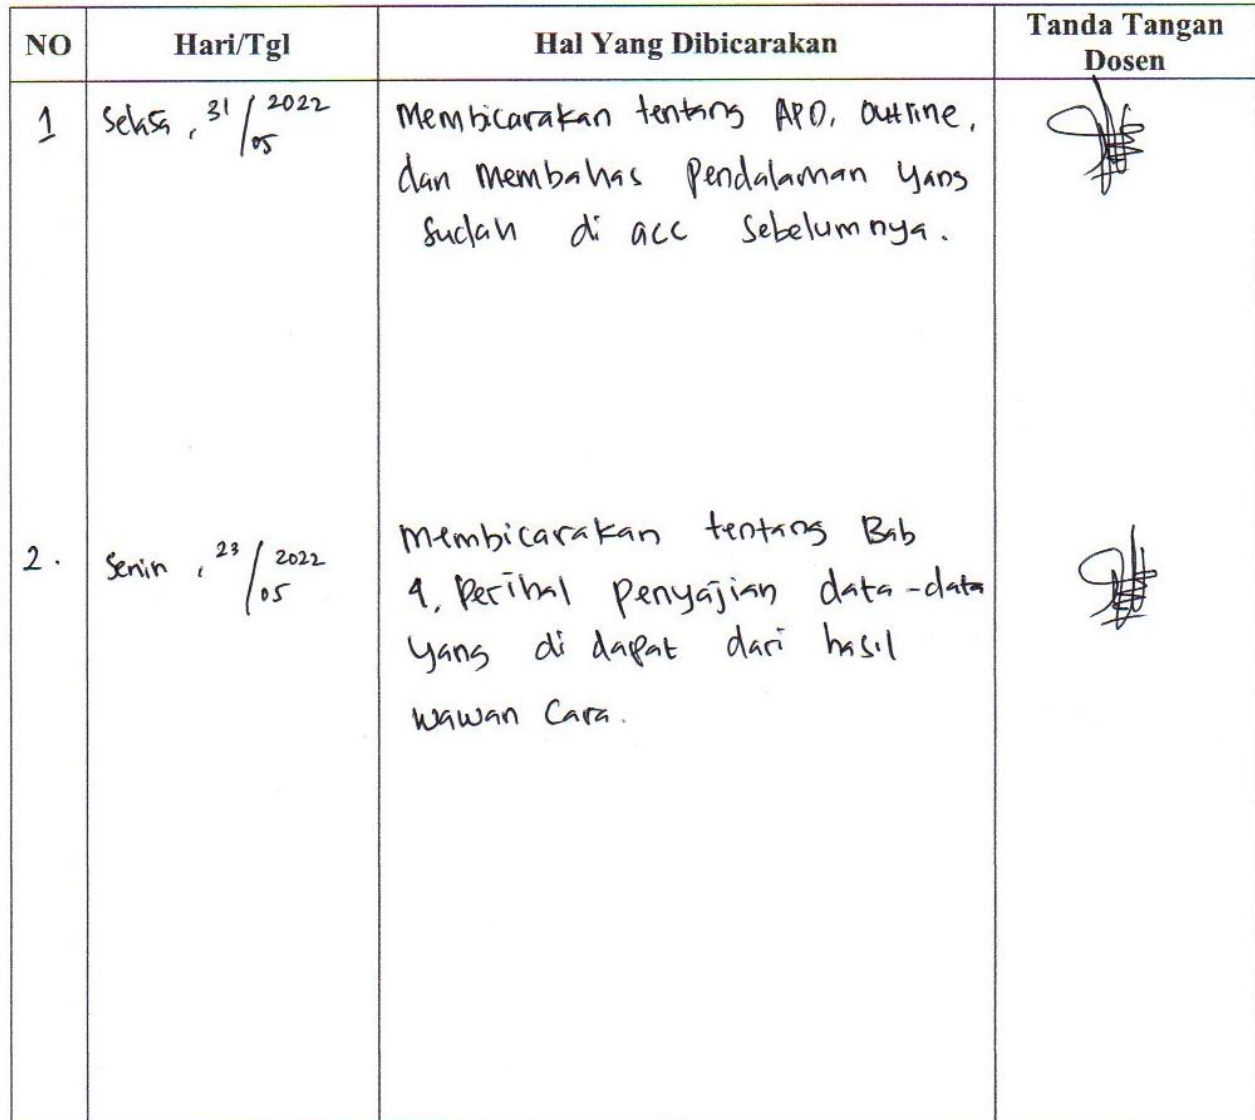 NO Hari/Tgl Hal Yang Dibicarakan Tanda Tangan
Dosen
1 Selasa, 31/05 2022 Membicarakan tentang APD, Outline,
dan membahas Pendalaman yang
sudah di acc sebelumnya.
2. Senin, 23/05 2022 Membicarakan tentang Bab
4, Perihal penyajian data-data
yang di dapat dari hasil
wawan cara.